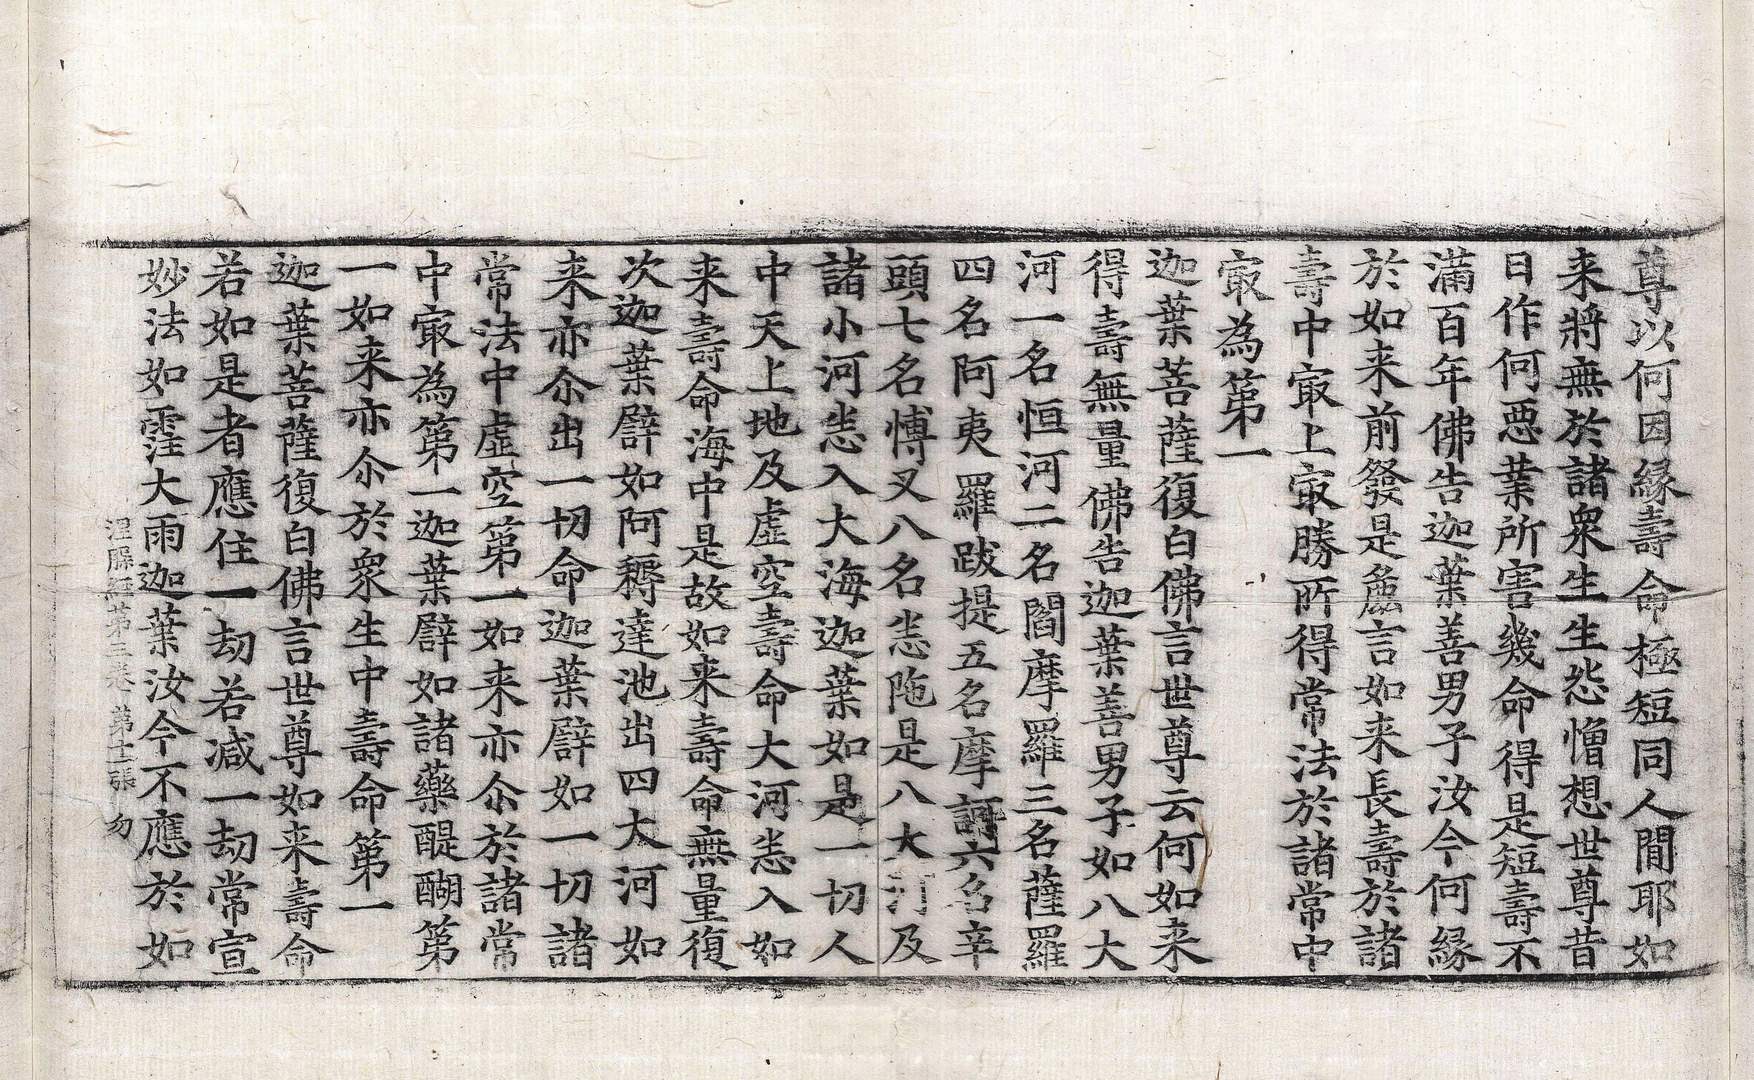 尊以何因緣壽命極短同人間耶如
来將無於諸衆生生怨憎想世尊昔
日作何惡業所害幾命得是短壽不
滿百年佛告迦葉善男子汝今何緣
於如来前發是麁言如来長壽於諸
壽中㝡上㝡勝所得常法於諸常中
㝡為第一
迦葉菩薩復白佛言世尊云何如来
得壽無量佛告迦葉善男子如八大
河一名恒河二名閻摩羅三名薩羅
四名阿夷羅跋提五名摩訶六名辛
頭七名愽叉八名悉陁是八大河及
諸小河悉入大海迦葉如是一切人
中天上地及虛空壽命大河悉入如
来壽命海中是故如来壽命無量復
次迦葉譬如阿耨達池出四大河如
来亦尒出一切命迦葉譬如一切諸
常法中虛空第一如来亦尒於諸常
中㝡為第一迦葉譬如諸藥醍醐第
一如来亦尒於衆生中壽命第一
迦葉菩薩復白佛言世尊如来壽命
若如是者應住一劫若減一劫常宣
妙法如霔大雨迦葉汝今不應於如
涅槃經第三卷 第十二張 勿